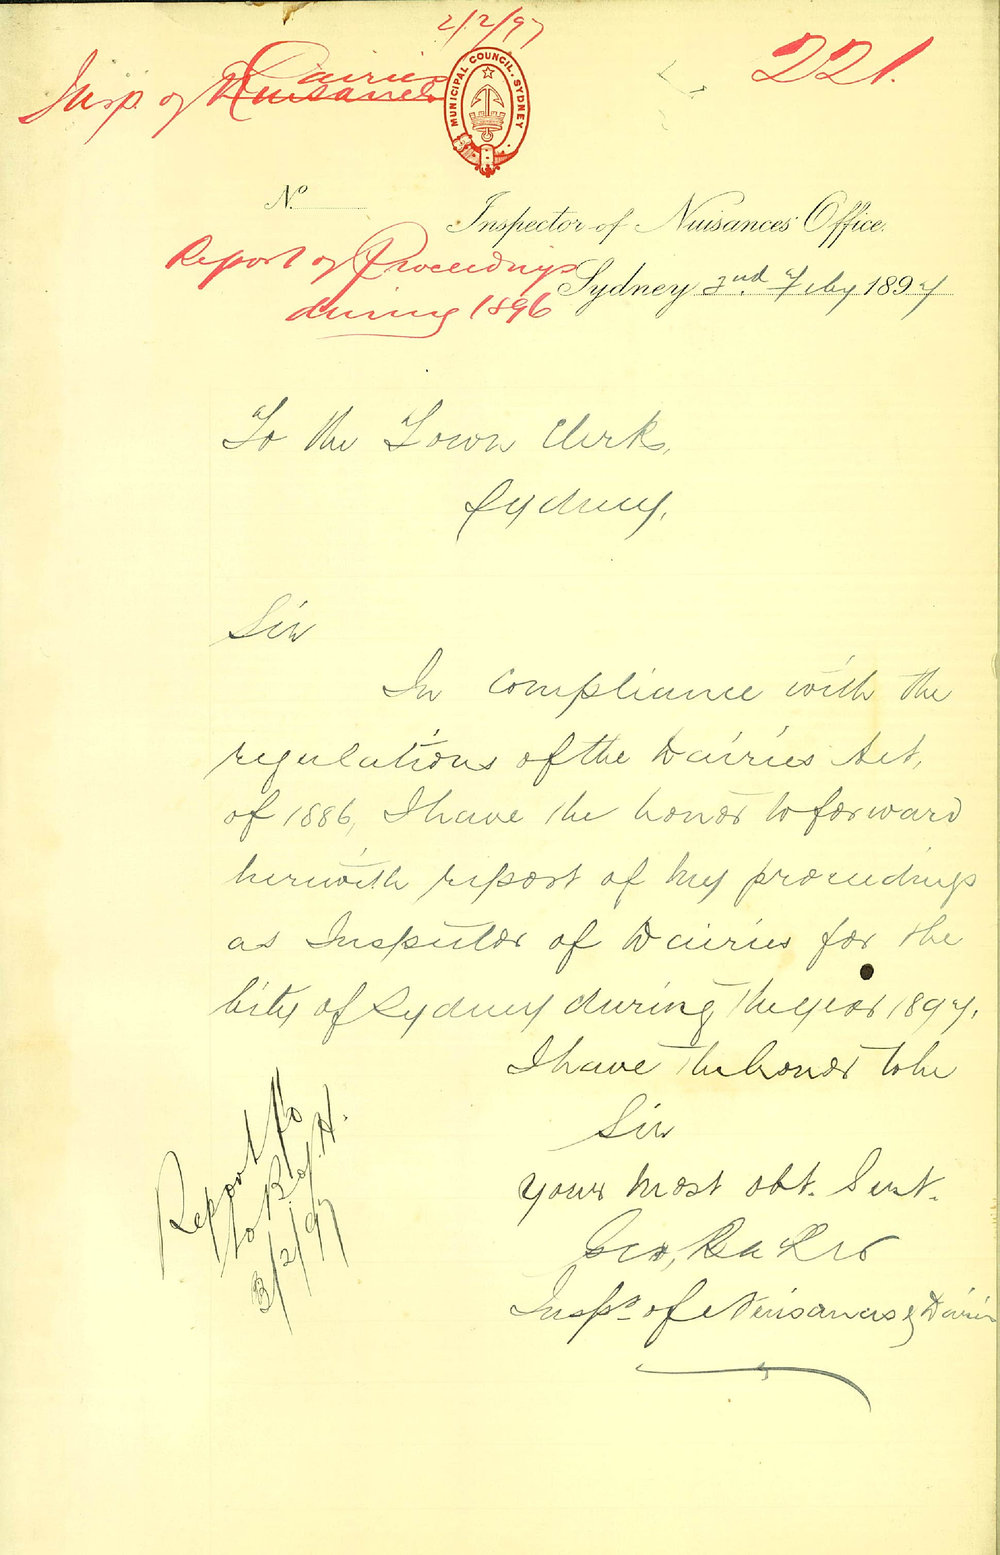 2/2/97
221.
Dairies
Insp. of Nuisances
MUNICIPAL COUNCIL, SYDNEY
No.
Inspector of Nuisances' Office.
Report of Proceedings
during 1896
Sydney 2nd Feby 1897
To the Town Clerk,
Sydney.
Sir
In compliance with the
regulations of the Dairies Act,
of 1886, I have the honor to forward
herewith report of my proceedings
as Inspector of Dairies for the
City of Sydney during the year 1897.
I have the honor to be
Sir
Your most obt. Servt.
Geo, Baker
Inspr of Nuisances & Dairies
Report fd
to B. of H.
3/2/97